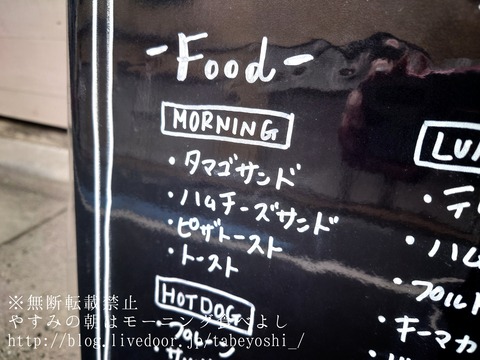 -Food-
MORNING
・タマゴサンド
・ハムチーズサンド
・ピザトースト
・トースト
HOT DOG
・プレーン
LU
・テ
・ハム
・プルド
・キーマカ
※無断転載禁止
やすみの朝はモーニング食べよし
http://blog.livedoor.jp/tabeyoshi_/